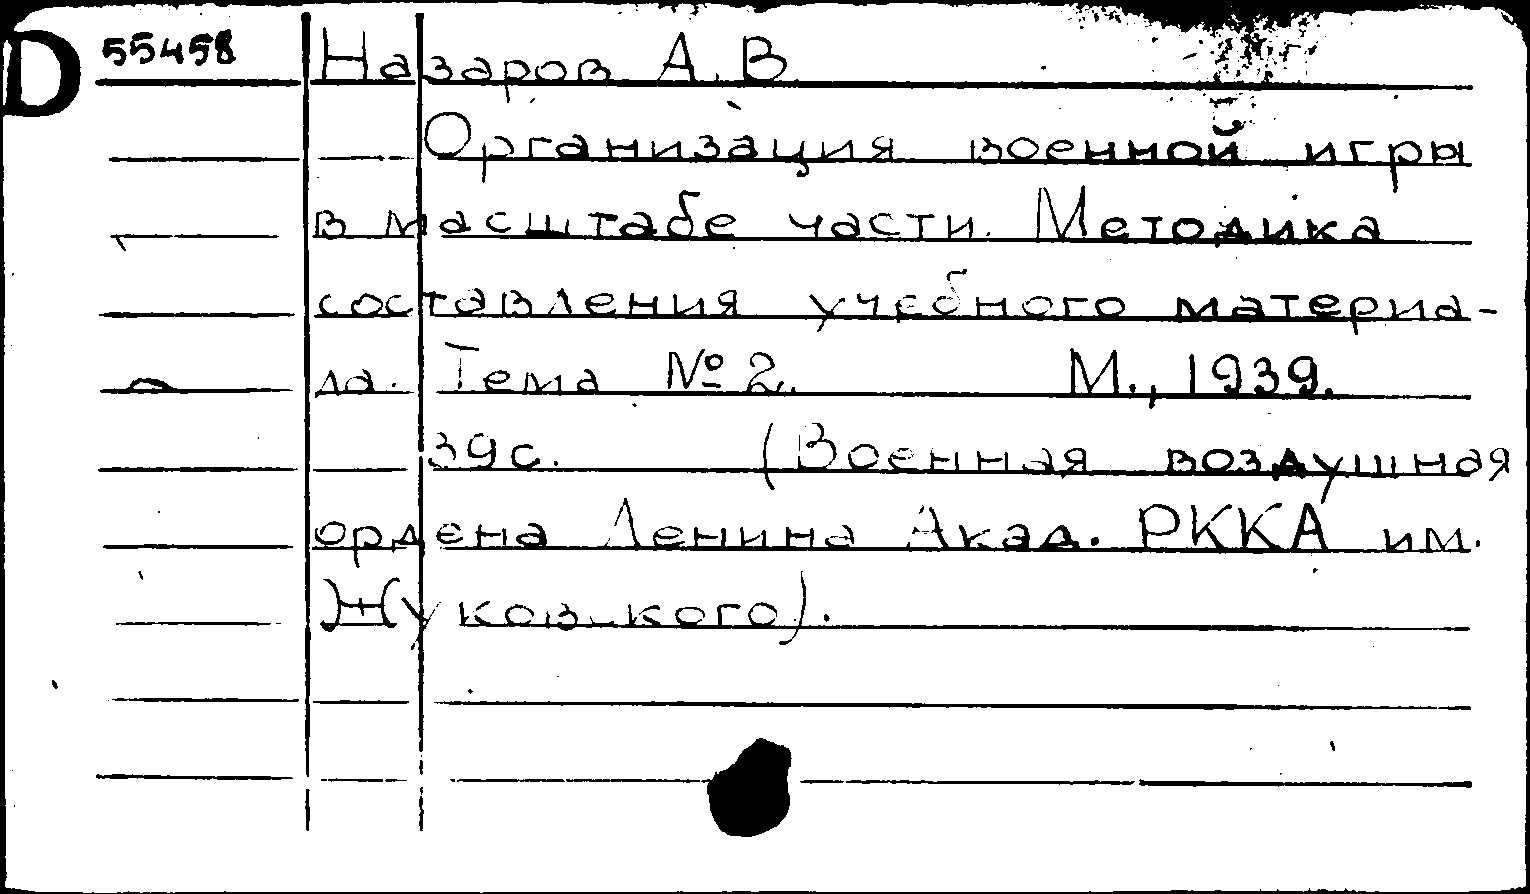 D 55458 Назаров А.В
Организация военной игры
в масштабе части. Методика
составления учебного материа-
ла. Тема № 2. М., 1939.
39с. (Военная воздушная
ордена Ленина Акад. РККА им.
Жуковского).